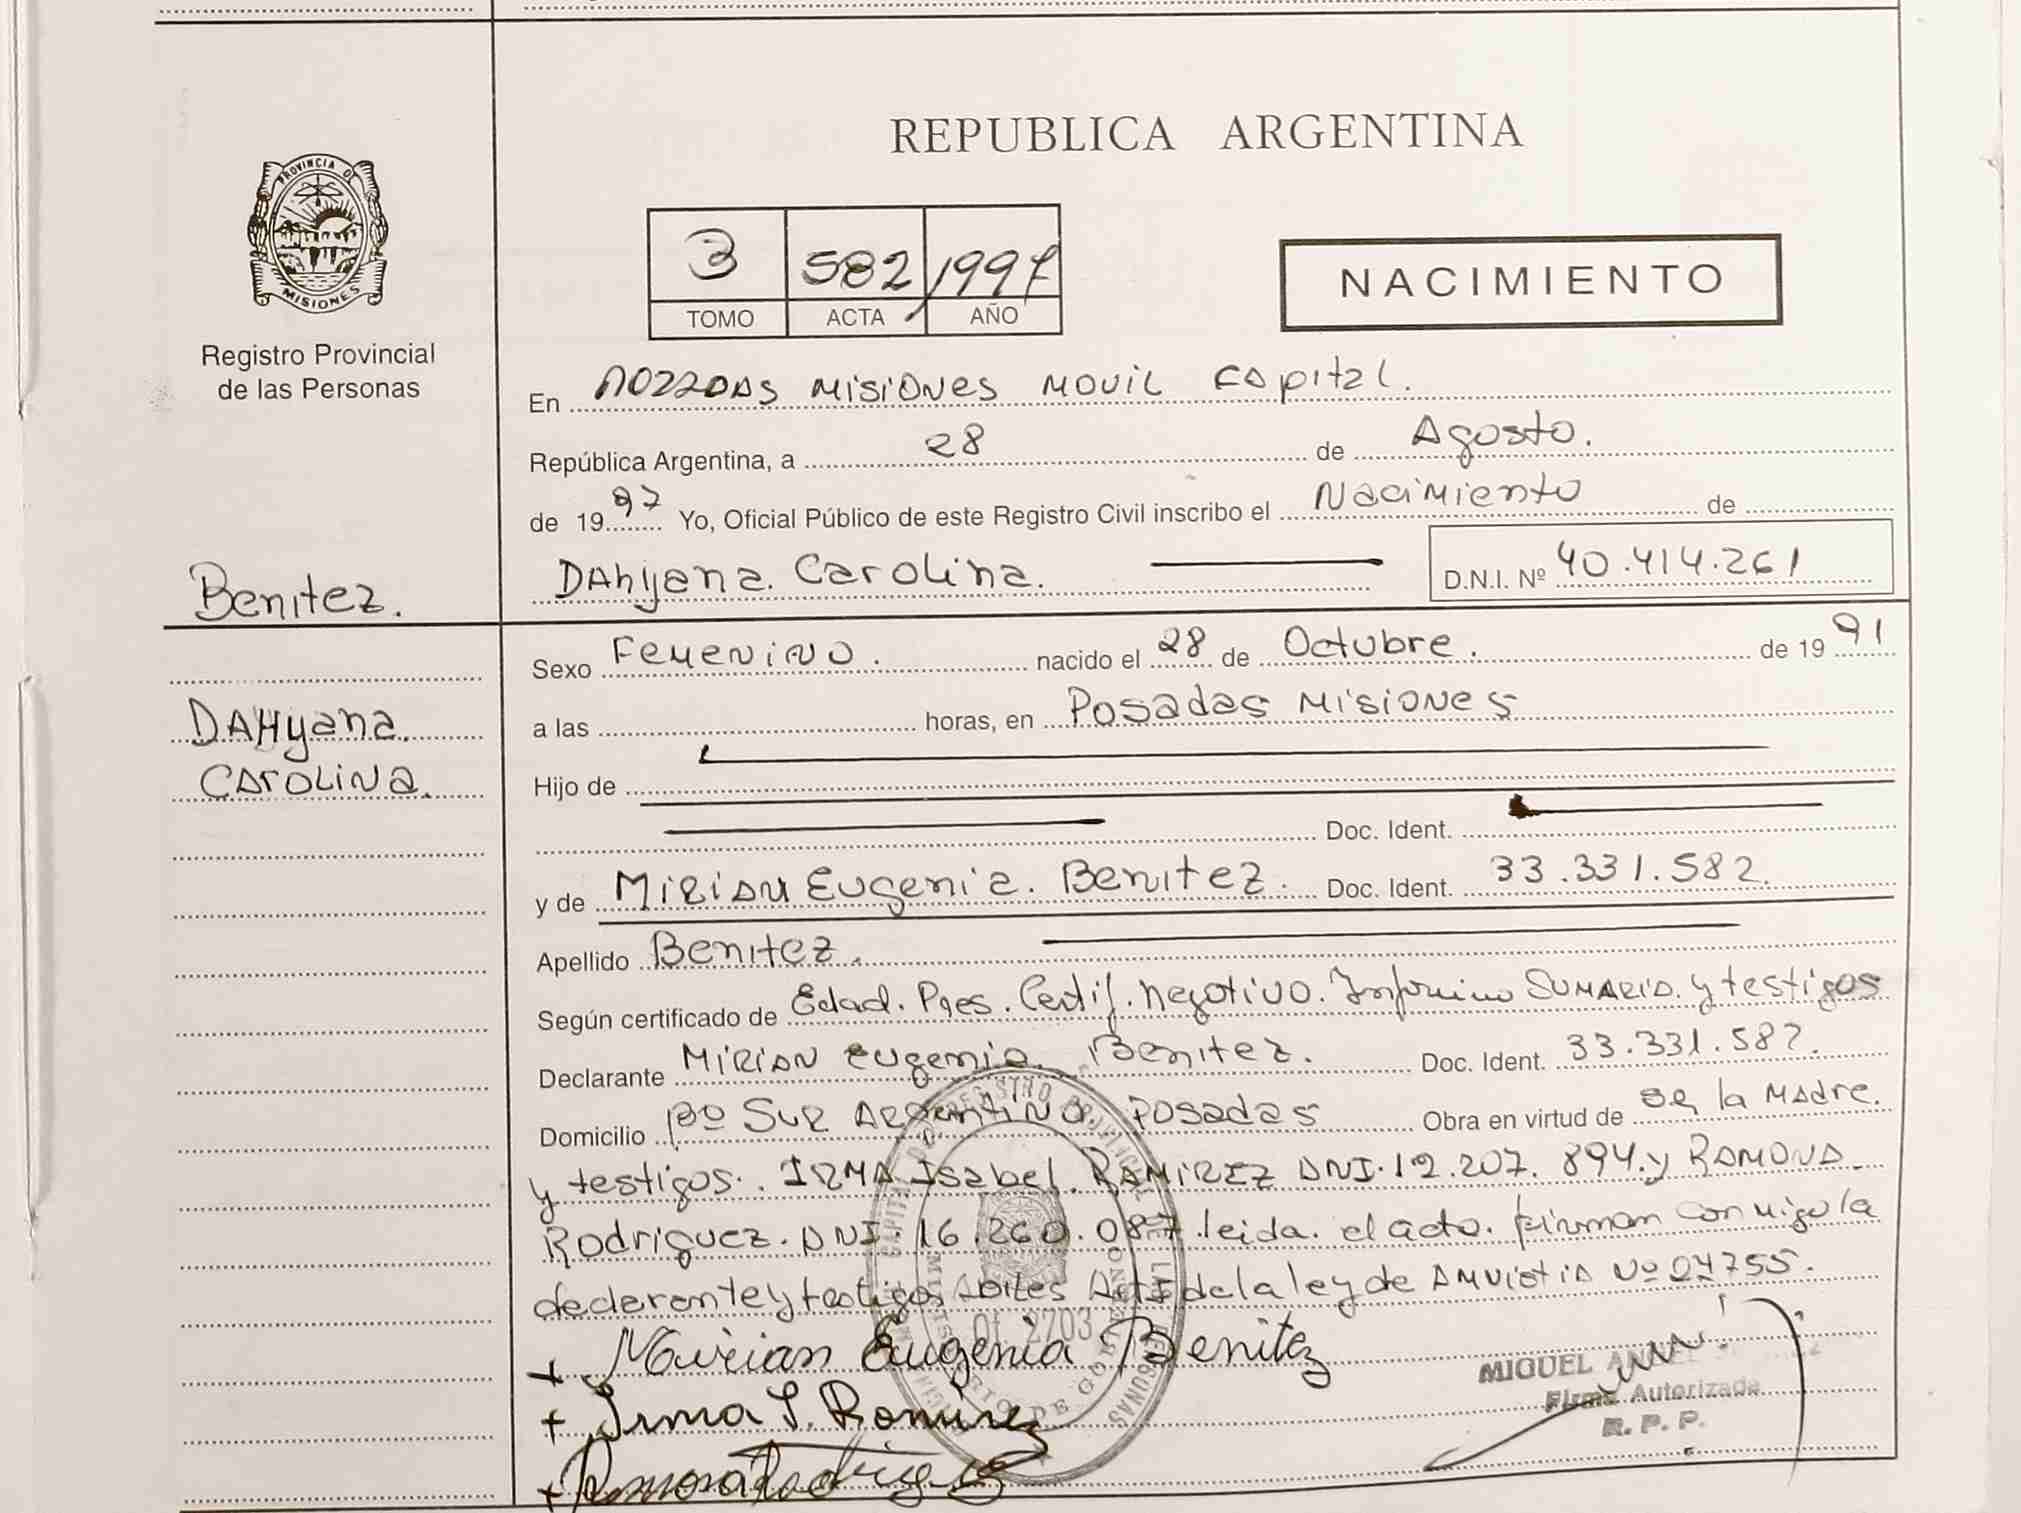 REPUBLICA ARGENTINA
PROVINCIA DE
MISIONES
Registro Provincial
de las Personas
3 582 1997
TOMO ACTA AÑO
NACIMIENTO
En Posadas Misiones Movil Capital.
República Argentina, a 28 de Agosto.
de 1997 Yo, Oficial Público de este Registro Civil inscribo el Nacimiento de
Benitez. DAhyana. Carolina. D.N.I. Nº 40.414.261
Sexo Femenino. nacido el 28 de Octubre. de 1991
DAHyana. a las horas, en Posadas Misiones
Carolina. Hijo de
Doc. Ident.
y de Mirian Eugenia. Benitez. Doc. Ident. 33.331.582.
Apellido Benitez.
Según certificado de Edad. Pres. Certif. Negativo. Sumaria. y testigos
Declarante Mirian Eugenia. Benitez. Doc. Ident. 33.331.582.
Domicilio Bº Sur Argentino. Posadas Obra en virtud de ser la Madre.
y testigos. Irma Isabel. Ramirez DNI. 12.207.894. y Ramona.
Rodriguez. DNI. 16.260.087. leida. el acta. firman conmigo la
declarante y testigos Art 1 de la ley de Amnistia Nº 24755.
Of. 2703
+ Mirian Eugenia Benitez
+ Irma I. Ramirez
+ Ramona Rodriguez
MIGUEL ANGEL
Firma Autorizada
R. P. P.